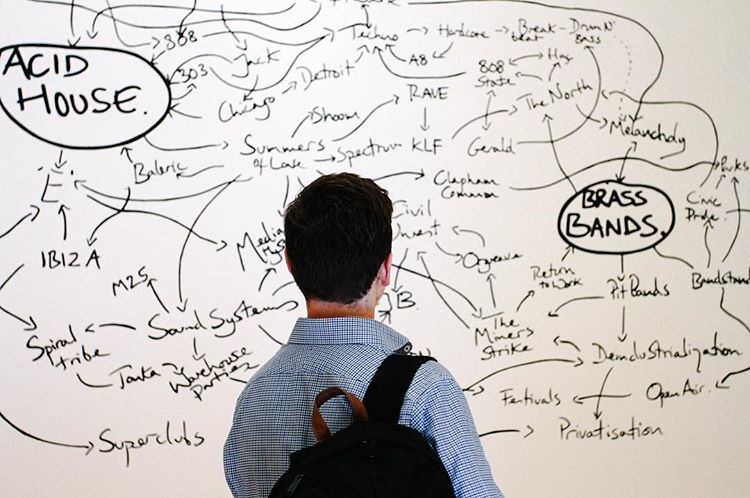 808
Techno
Hardcore
Break-
beat
Drum N'
Bass
ACID
HOUSE.
303
Jack
A8
808
State
Hay
Chicago
Detroit
RAVE
The North
Shoom
Melancholy
Summers
of Love
Spectrum
KLF
Gerald
Baleric
Clapham
Common
Parks
'E'
BRASS
BANDS.
Civic
Pride.
Civil
Unrest
Media
IBIZA
Orgreave
M25
Return
to Work
Pit Bands
Bandstand
B.
Sound Systems
The
Miners
Strike
Spiral
tribe
Tonka
Warehouse
parties
Deindustrialization
Festivals
Open Air.
Superclubs
Privatisation